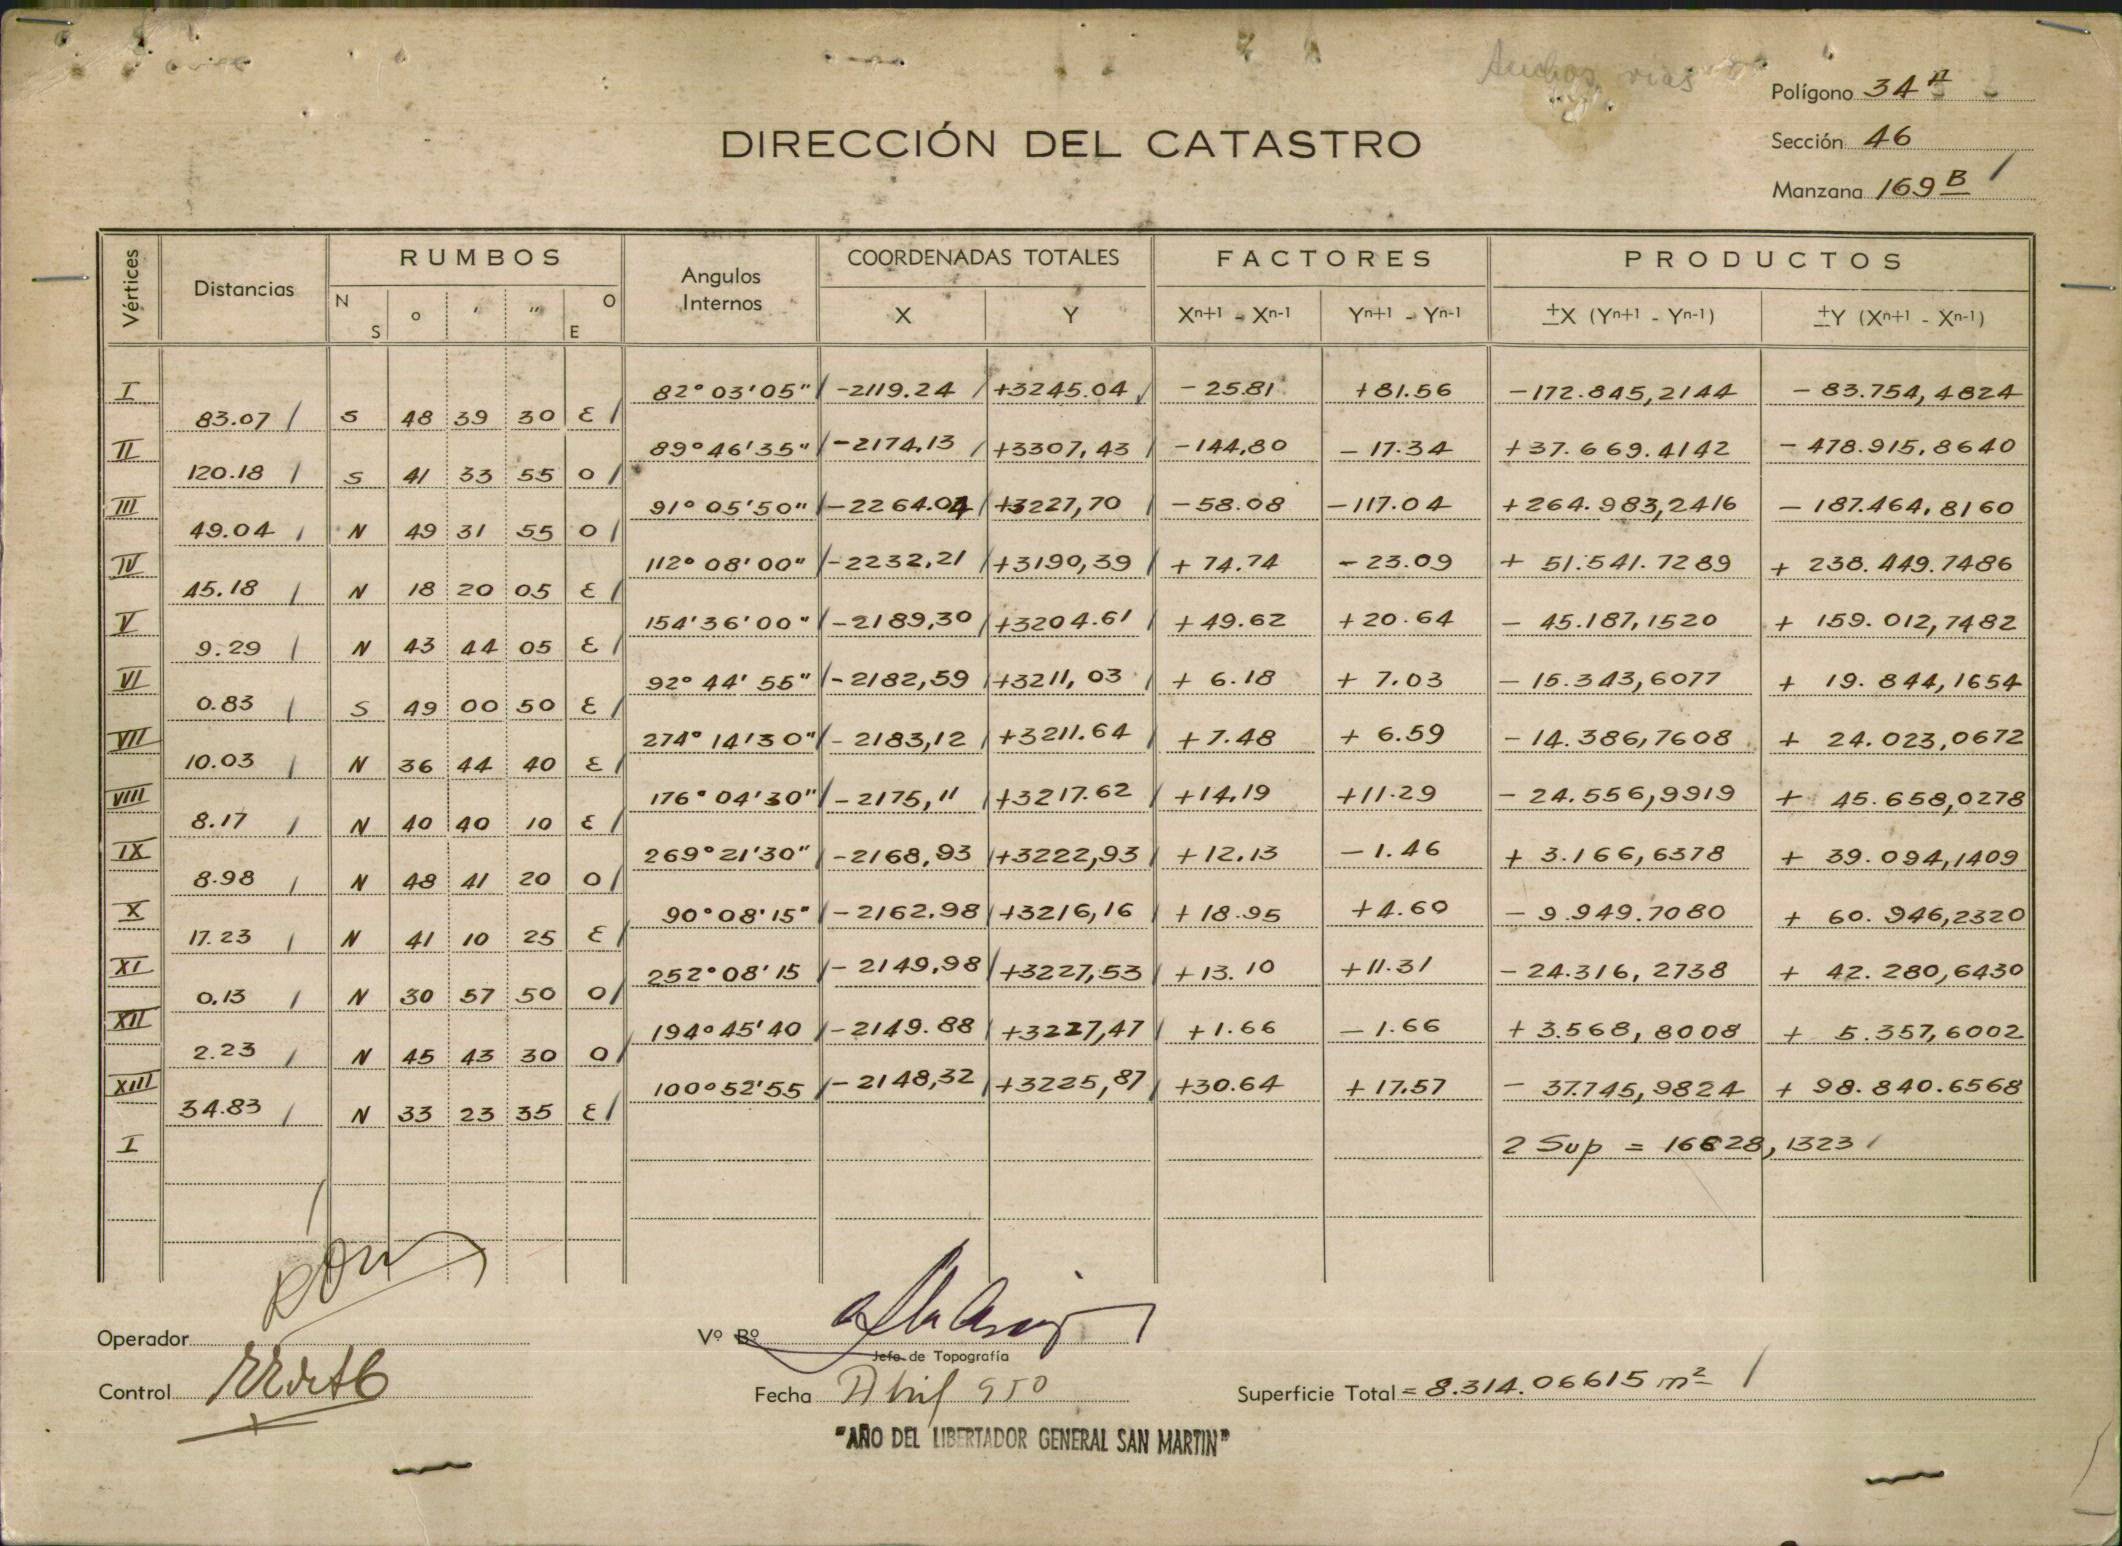 Anchos vias
Polígono 34 H
Sección 46
Manzana 169 B
DIRECCIÓN DEL CATASTRO
Vértices Distancias RUMBOS Angulos Internos COORDENADAS TOTALES FACTORES PRODUCTOS
N S ° ' " O E X Y Xn+1 - Xn-1 Yn+1 - Yn-1 ±X (Yn+1 - Yn-1) ±Y (Xn+1 - Xn-1)
I 82° 03' 05" -2119.24 +3245.04 -25.81 +81.56 -172.845,2144 -83.754,4824
83.07 S 48 39 30 E
II 89° 46' 35" -2174,13 +3307,43 -144,80 -17.34 +37.669.4142 -478.915,8640
120.18 S 41 33 55 O
III 91° 05' 50" -2264.04 +3227,70 -58.08 -117.04 +264.983,2416 -187.464,8160
49.04 N 49 31 55 O
IV 112° 08' 00" -2232,21 +3190,39 +74.74 -23.09 +51.541.7289 +238.449.7486
45.18 N 18 20 05 E
V 154' 36' 00" -2189,30 +3204.61 +49.62 +20.64 -45.187,1520 +159.012,7482
9.29 N 43 44 05 E
VI 92° 44' 55" -2182,59 +3211,03 +6.18 +7.03 -15.343,6077 +19.844,1654
0.83 S 49 00 50 E
VII 274° 14' 30" -2183,12 +3211.64 +7.48 +6.59 -14.386,7608 +24.023,0672
10.03 N 36 44 40 E
VIII 176° 04' 30" -2175,11 +3217.62 +14.19 +11.29 -24.556,9919 +45.658,0278
8.17 N 40 40 10 E
IX 269° 21' 30" -2168,93 +3222,93 +12.13 -1.46 +3.166,6378 +39.094,1409
8.98 N 48 41 20 O
X 90° 08' 15" -2162.98 +3216,16 +18.95 +4.60 -9.949.7080 +60.946,2320
17.23 N 41 10 25 E
XI 252° 08' 15 -2149,98 +3227,53 +13.10 +11.31 -24.316,2738 +42.280,6430
0.13 N 30 57 50 O
XII 194° 45' 40 -2149.88 +3227,47 +1.66 -1.66 +3.568,8008 +5.357,6002
2.23 N 45 43 30 O
XIII 100° 52' 55 -2148,32 +3225,87 +30.64 +17.57 -37.745,9824 +98.840.6568
34.83 N 33 23 35 E
I 2 Sup = 16628,1323
Operador
Vº Bº
Jefe de Topografía
Control
Fecha Abril 950
Superficie Total = 8.314.06615 m²
"AÑO DEL LIBERTADOR GENERAL SAN MARTIN"